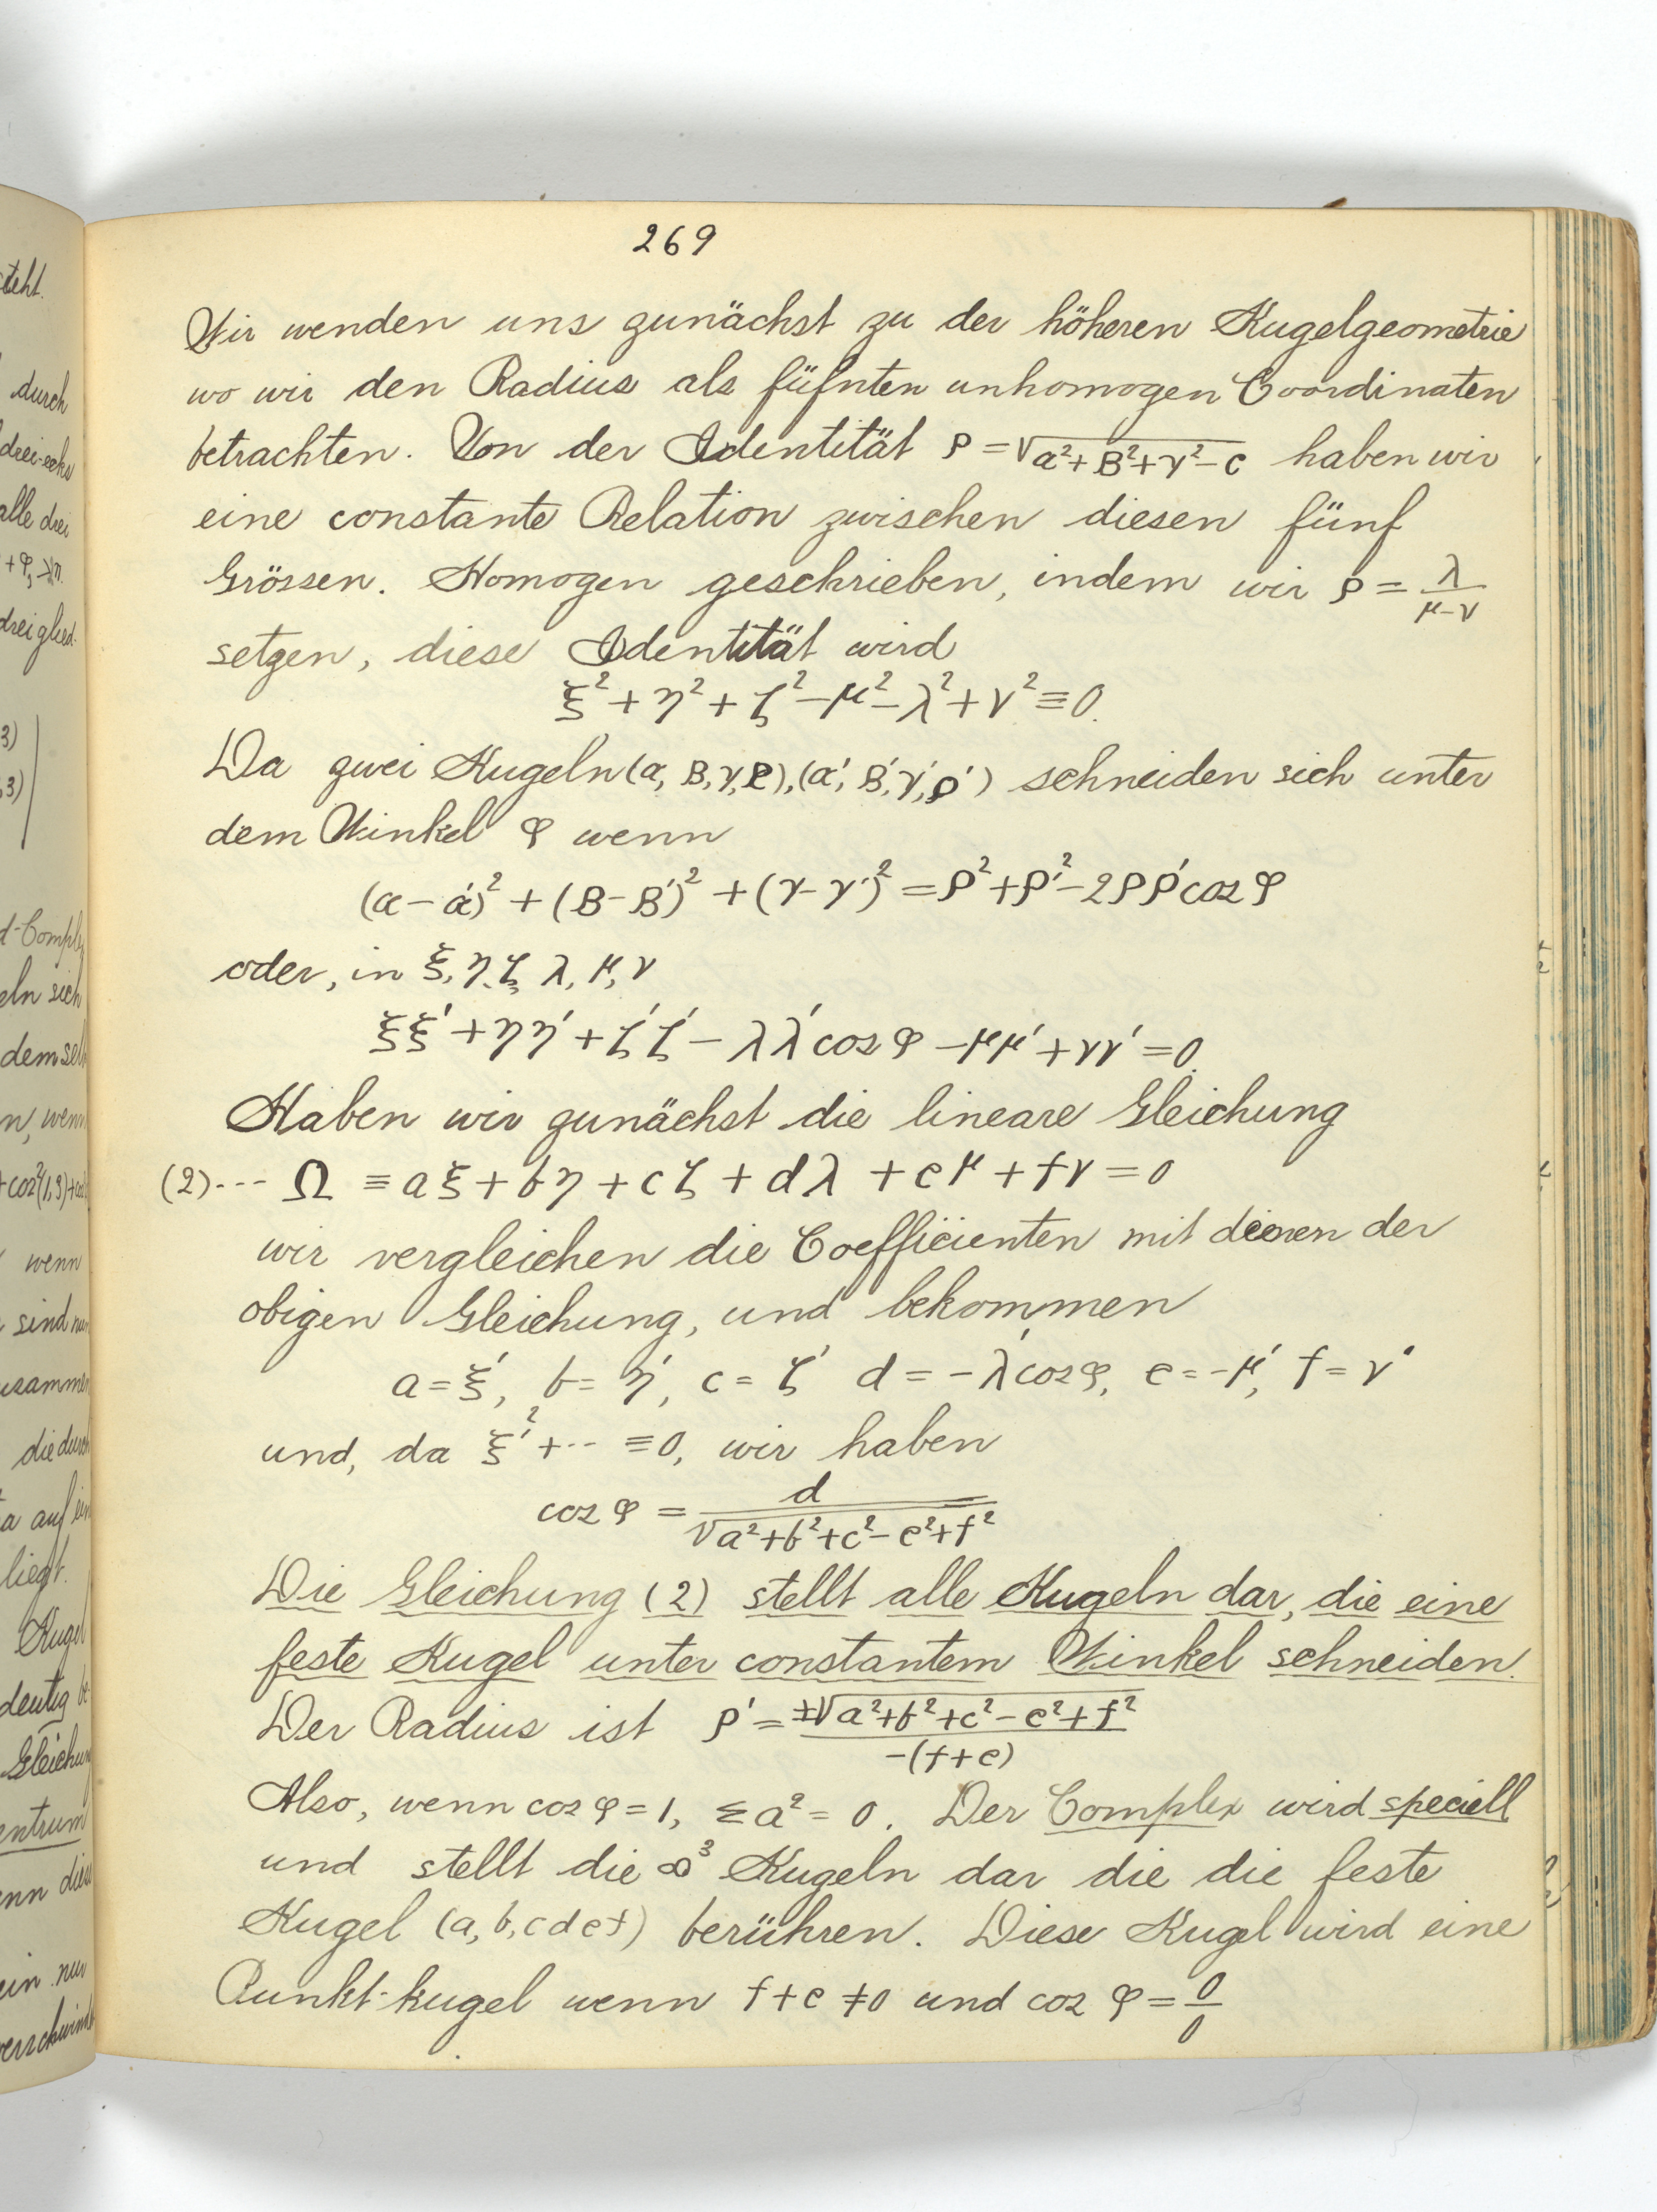 269
Wir wenden uns zunächst zu der höheren Kugelgeometrie
wo wir den Radius als füfnten unhomogen Coordinaten
betrachten. Von der Identität ρ = √(α²+β²+γ²−c) haben wir
eine constante Relation zwischen diesen fünf
Grössen. Homogen geschrieben, indem wir ρ = λ/(μ−ν)
setzen, diese Identität wird
ξ² + η² + ζ² − μ² − λ² + ν² ≡ 0.
Da zwei Kugeln (α, β, γ, ρ), (α', β', γ', ρ') schneiden sich unter
dem Winkel φ wenn
(α − α')² + (β − β')² + (γ − γ')² = ρ² + ρ'² − 2ρρ' cos φ
oder, in ξ, η, ζ, λ, μ, ν
ξξ' + ηη' + ζζ' − λλ' cos φ − μμ' + νν' = 0.
Haben wir zunächst die lineare Gleichung
(2)--- Ω ≡ aξ + bη + cζ + dλ + eμ + fν = 0
wir vergleichen die Coefficienten mit denen der
obigen Gleichung, und bekommen
a = ξ', b = η', c = ζ' d = −λ' cos φ, e = −μ', f = ν'
und, da ξ'² + ·· ≡ 0, wir haben
cos φ = d/√(a²+b²+c²−e²+f²)
Die Gleichung (2) stellt alle Kugeln dar, die eine
feste Kugel unter constantem Winkel schneiden.
Der Radius ist ρ' = ±√(a²+b²+c²−e²+f²)/−(f+e)
Also, wenn cos φ = 1, Σa² = 0. Der Complex wird speciell
und stellt die ∞³ Kugeln dar die die feste
Kugel (a, b, c d e f) berühren. Diese Kugel wird eine
Punkt-kugel wenn f + e ≠ 0 und cos φ = 0/0
teht.
durch
drei-ecks
alle drei
dreiglied.
3)
,3)
d-Comple
eln sich
dem sel
n, wenn
wenn
sind nun
usammen
die durch
a auf ein
liegt.
Kugel
deutig be-
Gleichun
entrum
nn diese
ein nur
verschwind